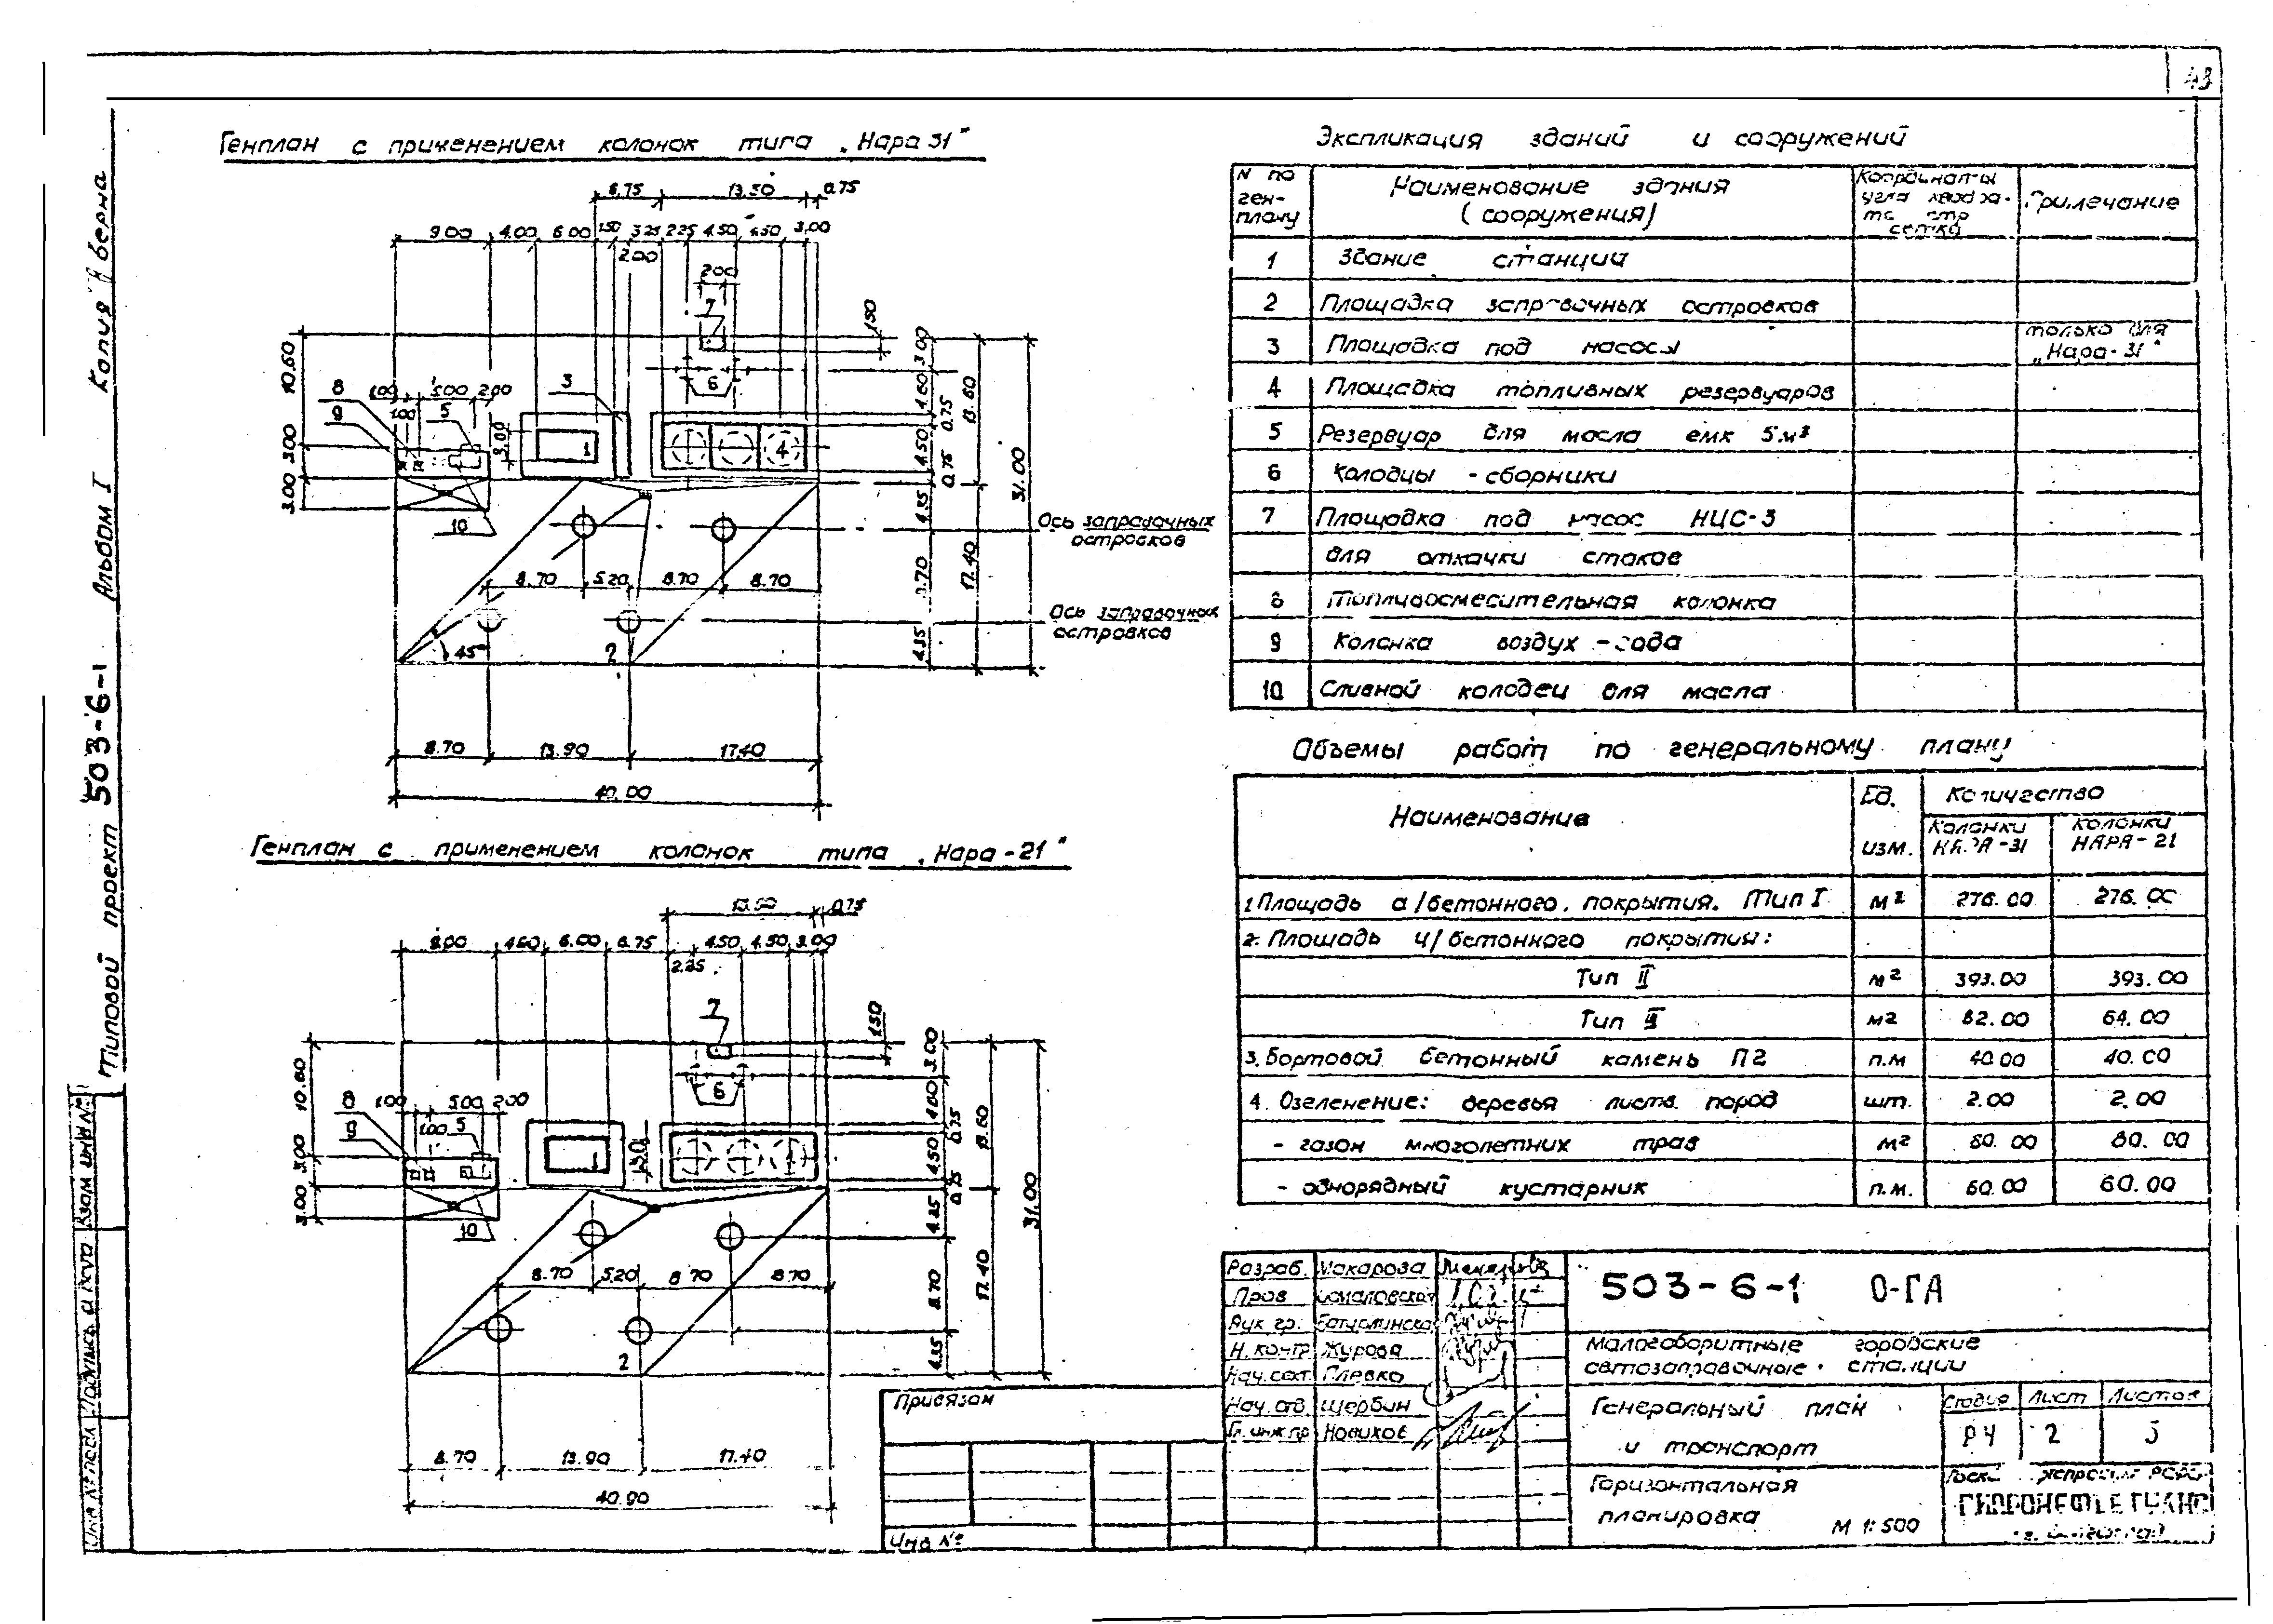 43
Генплан с применением колонок типа „Нара 31"
6.75 13.50 0.75
9.00 4.00 6.00 1.50 3.25 2.25 4.50 4.50 3.00
2.00
2.00
7
1.50
10.60 3.00 3.00
8 1.00 5.00 2.00
9 1.00 5
3
6
3.00
1
4
10
3.00 1.60 0.75 4.50 0.75 4.35 8.70 4.35
13.60 17.40
31.00
Ось заправочных
островков
8.70 5.20 8.70 8.70
Ось заправочных
островков
45°
2
8.70 13.90 17.40
40.00
Генплан с применением колонок типа „Нара-21"
13.50 0.75
9.00 4.60 6.00 6.75 4.50 4.50 3.00
2.25
7
1.50
10.60 3.00 3.00
8 1.00 5.00 2.00
9 1.00 5
6
3.00
1
10
3.00 1.60 0.75 4.50 0.75 4.35 8.70 4.35
13.60 17.40
31.00
8.70 5.20 8.70 8.70
2
8.70 13.90 17.40
40.90
Экспликация зданий и сооружений
N по ген-плану Наименование здания (сооружения) Координаты угла квадра-та стр сетка Примечание
1 Здание станции
2 Площадка заправочных островков
3 Площадка под насосы только для „Нара-31"
4 Площадка топливных резервуаров
5 Резервуар для масла емк 5м³
6 Колодцы - сборники
7 Площадка под насос НЦС-3
для откачки стоков
8 Топливосмесительная колонка
9 Колонка воздух - вода
10 Сливной колодец для масла
Объемы работ по генеральному плану
Наименование Ед. изм. Количество
Колонки НАРА-31 Колонки НАРА-21
1. Площадь а/бетонного покрытия. Тип I м² 276.00 276.00
2. Площадь ц/бетонного покрытия:
Тип II м² 393.00 393.00
Тип III м² 82.00 64.00
3. Бортовой бетонный камень П2 п.м 40.00 40.00
4. Озеленение: деревья листв. пород шт. 2.00 2.00
- газон многолетних трав м² 80.00 80.00
- однорядный кустарник п.м. 60.00 60.00
Разраб. Макарова
Пров
Рук. гр.
Н. контр Журова
Нач. сект. Плевко
Нач. отд Щербин
Гл. инж пр Новиков
503-6-1 О-ГА
Малогабаритные городские
автозаправочные станции
Генеральный план
и транспорт
Стадия Лист Листов
РЧ 2 5
Горизонтальная
планировка М 1:500
ГИПРОНЕФТЕТРАНС
Привязан
Инв №
Типовой проект 503-6-1 Альбом I Копия верна
Инв № подл Подпись и дата Взам инв №